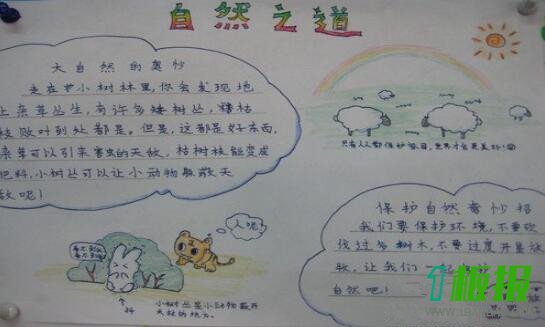 自然之道
大自然的奥妙
走在小树林里,你会发现地
上杂草丛生,有许多矮树丛,枯
枝败叶到处都是。但是,这都是好东西,
杂草可以引来害虫的天敌,枯树枝能变成
肥料,小树丛可以让小动物躲避天
敌呢!
只有人人都保护环境,世界才会更美好!
人呢?
小树丛是小动物躲开
天敌的地方。
保护自然奇妙招
我们要保护环境,不要砍
伐过多树木,不要过度开垦放
牧,让我们一起
自然吧!
板报